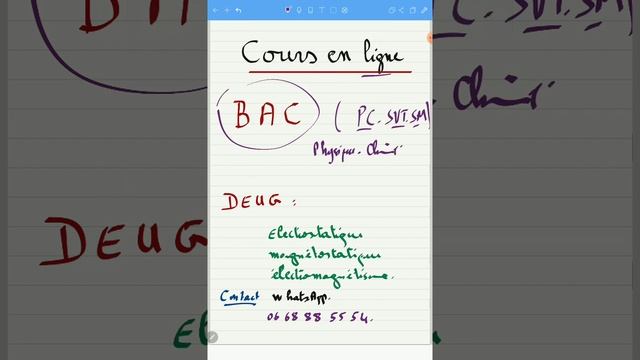 Cours en ligne
BAC (PC. SVT. SM)
Physique. Chimi.
DEUG :
Electrostatique
magnétostatique
électromagnétisme.
Contact whatsApp.
06 68 88 55 54.